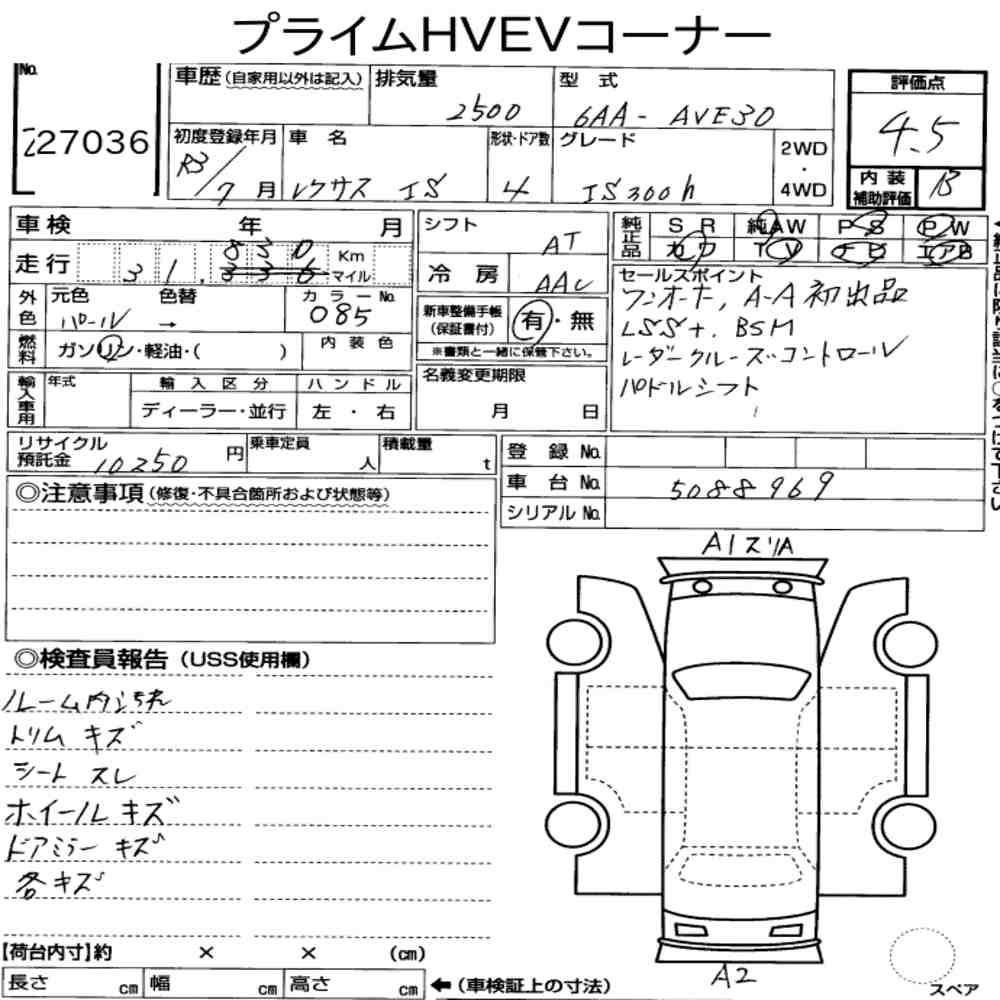 プライムHVEVコーナー
No.
27036
車歴 (自家用以外は記入)
排気量
2500
型 式
6AA - AVE30
評価点
4.5
初度登録年月
R3/7 月
車 名
レクサス IS
形状・ドア数
4
グレード
IS300h
2WD
・
4WD
内 装
補助評価
B
車検 年 月
走行 31,830 Km マイル
外色
元色 色替
パール →
カラーNo.
085
燃料
ガソリン・軽油・( )
内装色
輸入車用
年式
輸入区分
ディーラー・並行
ハンドル
左 ・ 右
シフト
AT
冷 房
AAC
新車整備手帳
(保証書付)
有・無
※書類と一緒に保管下さい。
名義変更期限
月 日
純正品
SR 純AW PS PW
カワ TV ナビ エアB
セールスポイント
ワンオーナ, A-A初出品
LSS+, BSM
レーダークルーズコントロール
パドルシフト
リサイクル
預託金 10250 円
乗車定員
人
積載量
t
登 録 No.
車 台 No. 5088969
シリアル No.
◎注意事項(修復・不具合箇所および状態等)
◎検査員報告(USS使用欄)
ルーム内汚れ
トリム キズ
シート スレ
ホイール キズ
ドアミラー キズ
各キズ
A1 スリA
A2
スペア
【荷台内寸】約 × × (cm)
長さ cm 幅 cm 高さ cm ←(車検証上の寸法)